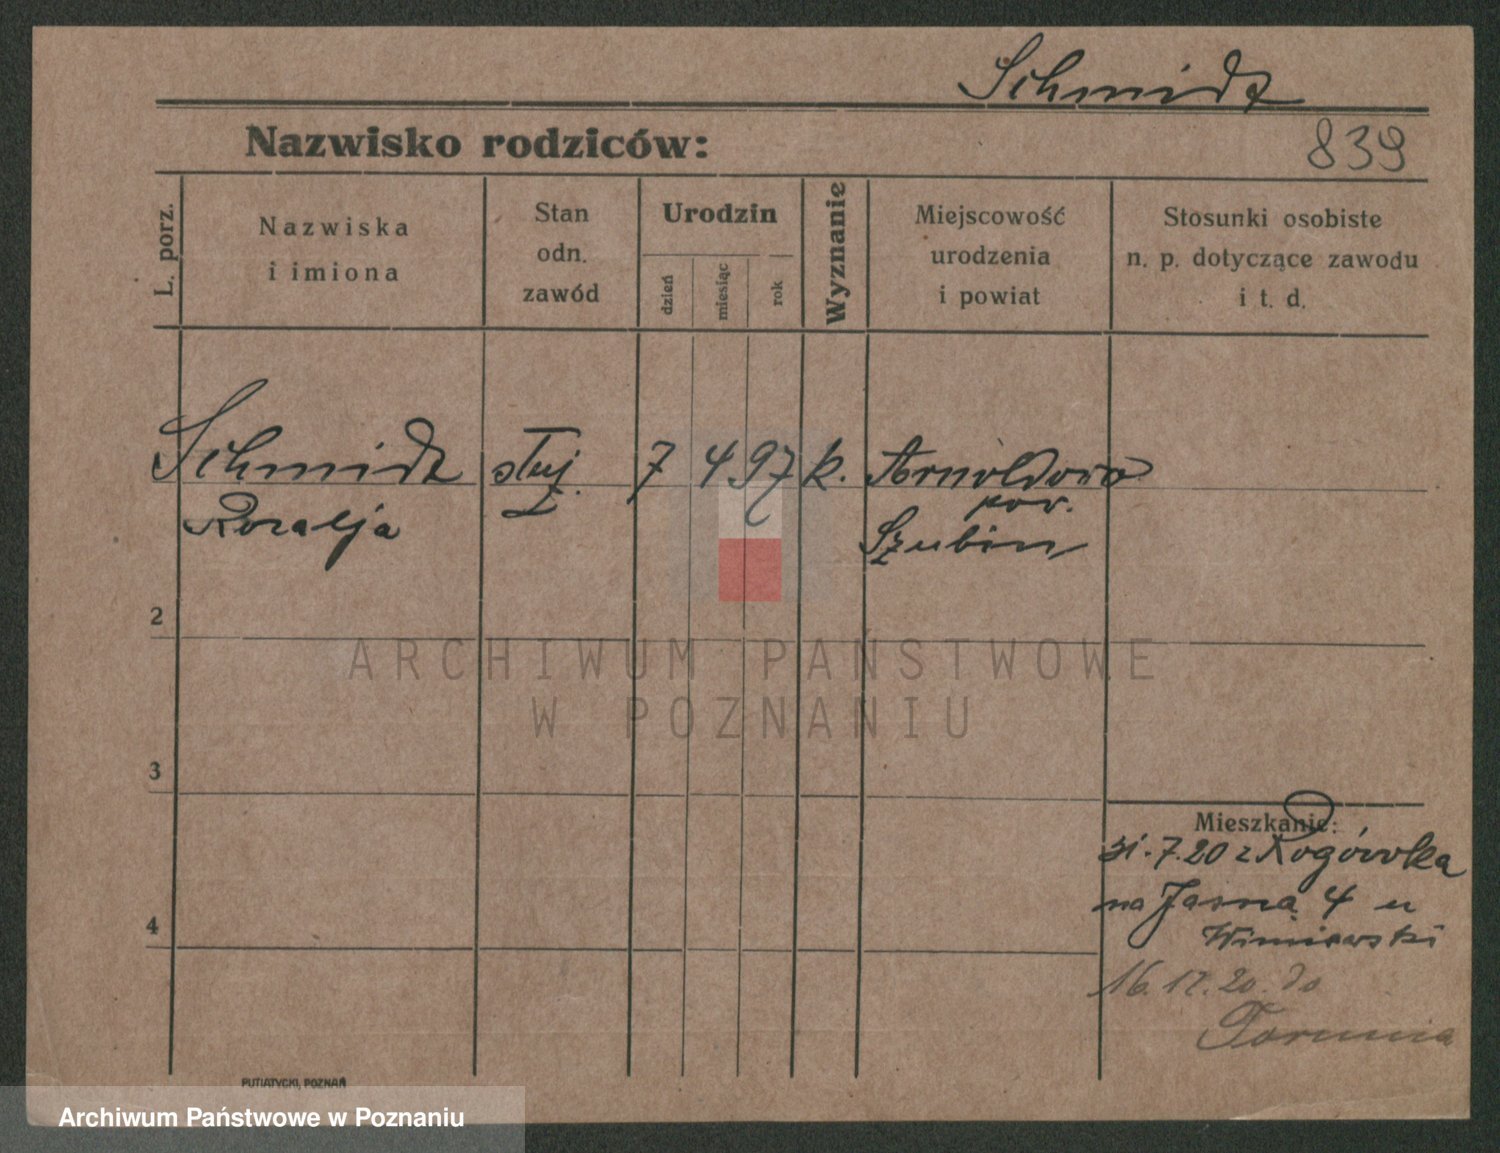 Schmidt
Nazwisko rodziców:
839
L. porz.
Nazwiska
i imiona
Stan
odn.
zawód
Urodzin
dzień
miesiąc
rok
Wyznanie
Miejscowość
urodzenia
i powiat
Stosunki osobiste
n. p. dotyczące zawodu
i t. d.
Schmidt służ. 7 4 97 k. Arnoldowo
Rozalja
pow.
Szubin
2
ARCHIWUM PAŃSTWOWE
W POZNANIU
3
Mieszkanie:
31.7.20 z Rogówka
na Jasna 4 u
4
16.12.20. do
Torunia
PUTIATYCKI, POZNAŃ
Archiwum Państwowe w Poznaniu